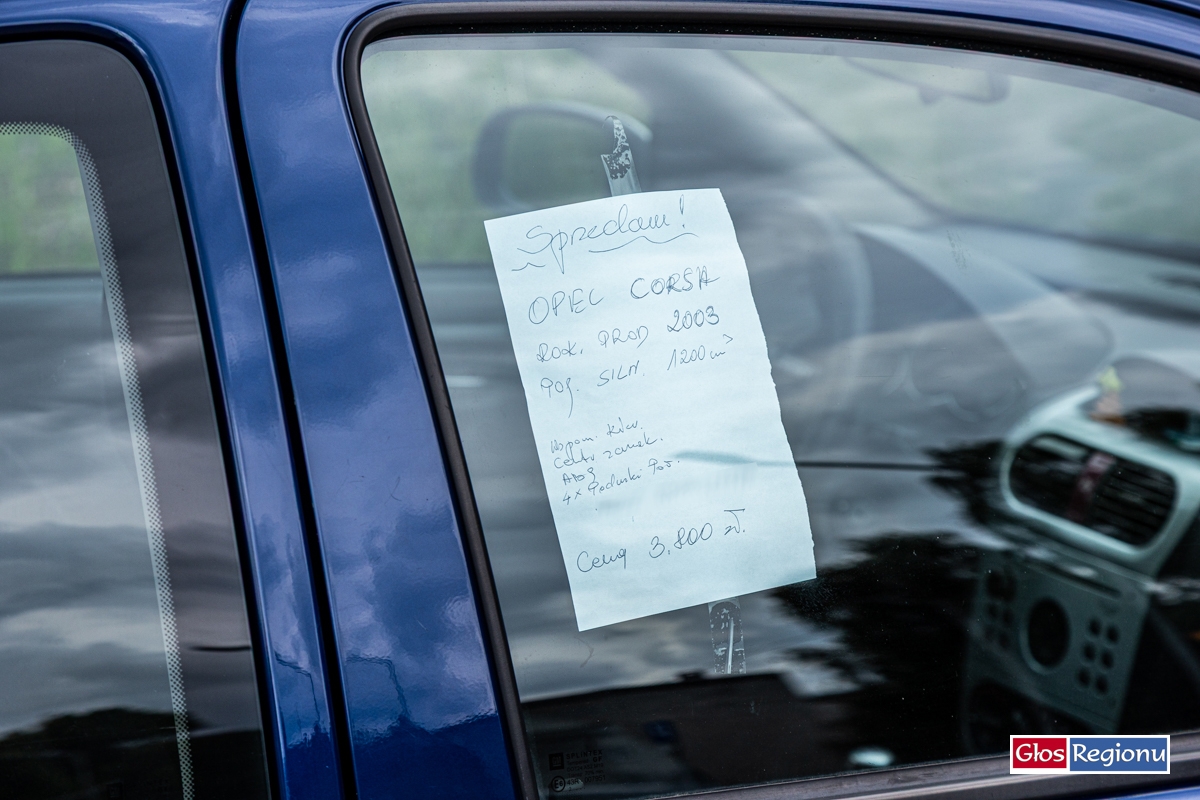 Sprzedam!
OPEL CORSA
ROK. PROD 2003
POJ. SILN. 1200 cm³
Wspom. kier.
Centr zamek.
4x Poduski Pow.
Cena 3,800 zł.
Głos Regionu